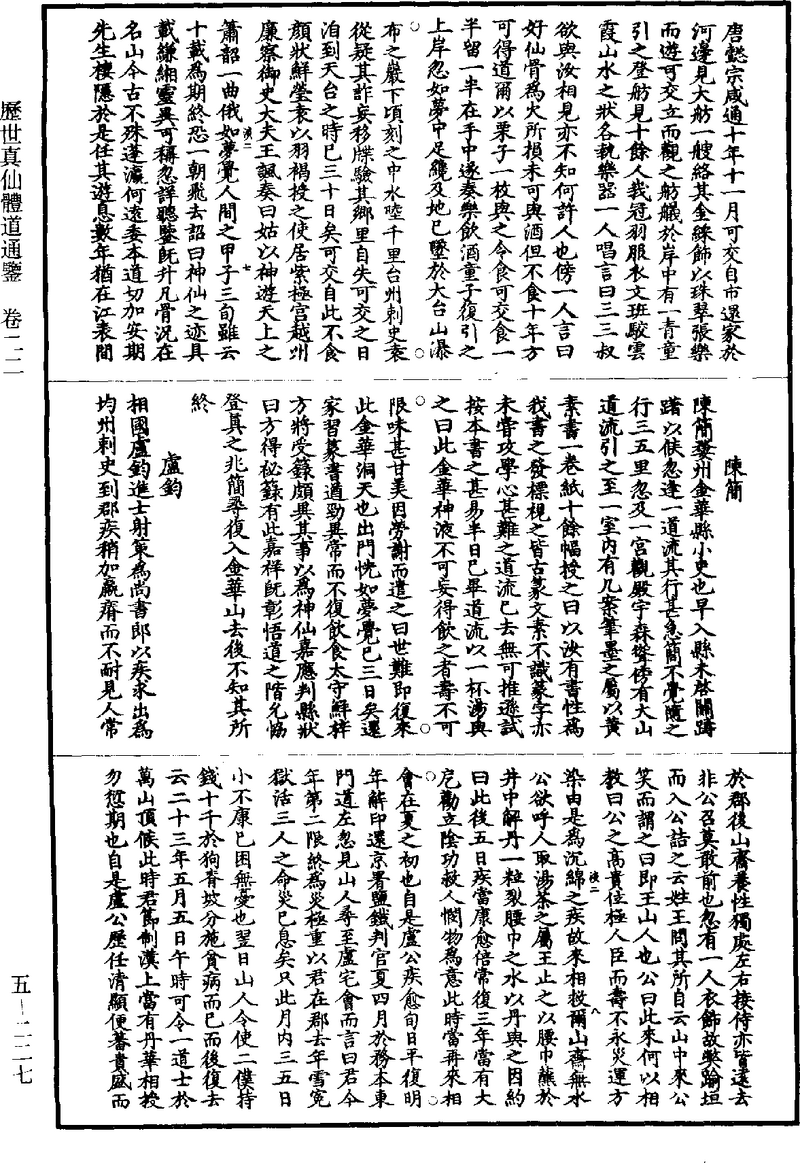 歷世真仙體道通鑒　卷二二
五—二二七
唐懿宗咸通十年十一月可交自市還家於
河邊見大舫一艘絡其金綵飾以珠翠張樂
而遊可交立而觀之舫艤於岸中有一青童
引之登舫見十餘人峩冠羽服衣文班駁雲
霞山水之狀各執樂器一人唱言曰三三叔
欲與汝相見亦不知何許人也傍一人言曰
好仙骨為火所損未可與酒但不食十年方
可得道爾以栗子一枚與之令食可交食一
半留一半在手中遂奏樂飲酒童子復引之
上岸忽如夢中足纔及地已墜於天台山瀑
布之巖下頃刻之中水陸千里台州刺史袁
從疑其詐妄移牒驗其鄉里自失可交之日
洎到天台之時已三十日矣可交自此不食
顏狀鮮瑩袁以羽褐授之使居紫極宮越州
廉察御史大夫王諷奏曰姑以神遊天上之
簫韶一曲俄如夢覺人間之甲子三旬雖云
十載為期終恐一朝飛去詔曰神仙之迹具
載縑緗靈異可稱忽詳聽鑒旣升凡骨況在
名山今古不殊蓬瀛何遠委本道切加安期
先生棲隱於是任其遊息數年猶在江表間
陳簡
陳簡婺州金華縣小吏也早入縣未啓關躊
躇以俟忽逢一道流其行甚急簡不覺隨之
行三五里忽及一宮觀嚴宇森聳傍有大山
道流引之至一室內有几案筆墨之屬以黃
素書一卷紙十餘幅授之曰以汝有書性為
我書之發標視之皆古篆文素不識篆字亦
未嘗攻學心甚難之道流已去無可推遜試
按本書之甚易半日已畢道流以一杯湯與
之曰此金華神液不可妄得飲之者壽不可
限味甚甘美因勞謝而遣之曰世難即復來
此金華洞天也出門恍如夢覺已三日矣還
家習篆書遒勁異常而不復飲食太守鮮祥
方將受籙頗異其事以為神仙嘉應判縣狀
曰方得祕籙有此嘉祥旣彰悟道之階允協
登真之兆簡尋復入金華山去後不知其所
終
盧鈞
相國盧鈞進士射策為尚書郎以疾求出為
均州刺史到郡疾稍加羸瘠而不耐見人常
於郡後山齋養性獨處左右接侍亦皆遠去
非公召莫敢前也忽有一人衣飾故弊踰垣
而入公詰之云姓王問其所自云山中來公
笑而謂之曰即王山人也公曰此來何以相
教曰公之高貴位極人臣而壽不永災運方
染由是為沉綿之疾故來相救爾山齋無水
公欲呼人取湯茶之屬王止之以腰巾蘸於
井中解丹一粒裂腰巾之水以丹與之因約
曰此後五日疾當康愈倍常復三年當有大
厄勸立陰功救人憫物為意此時當再來相
會在夏之初也自是盧公疾愈旬日平復明
年解印還京署鹽鐵判官夏四月於務本東
門道左忽見山人尋至盧宅會而言曰君今
年第二限終為災極重以君在郡去年雪冤
獄活三人之命災已息矣只此月內三五日
小不康已困無憂也翌日山人令使二僕持
錢十千於狗脊坡分施貧病而已而後復去
云二十三年五月五日午時可令一道士於
萬山頂候此時君節制漢上當有丹華相授
勿愆期也自是盧公歷任清顯便蕃貴盛而